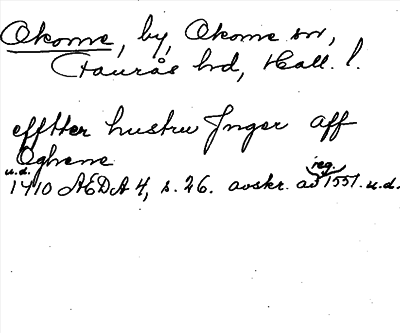 Okome, by, Okome sn,
Faurås hd, Hall. l.
efftter hustru Jnger aff
Ogheme
u.d.
1410 ÆDA 4, s. 26. avskr. av reg. 1551. u.d.